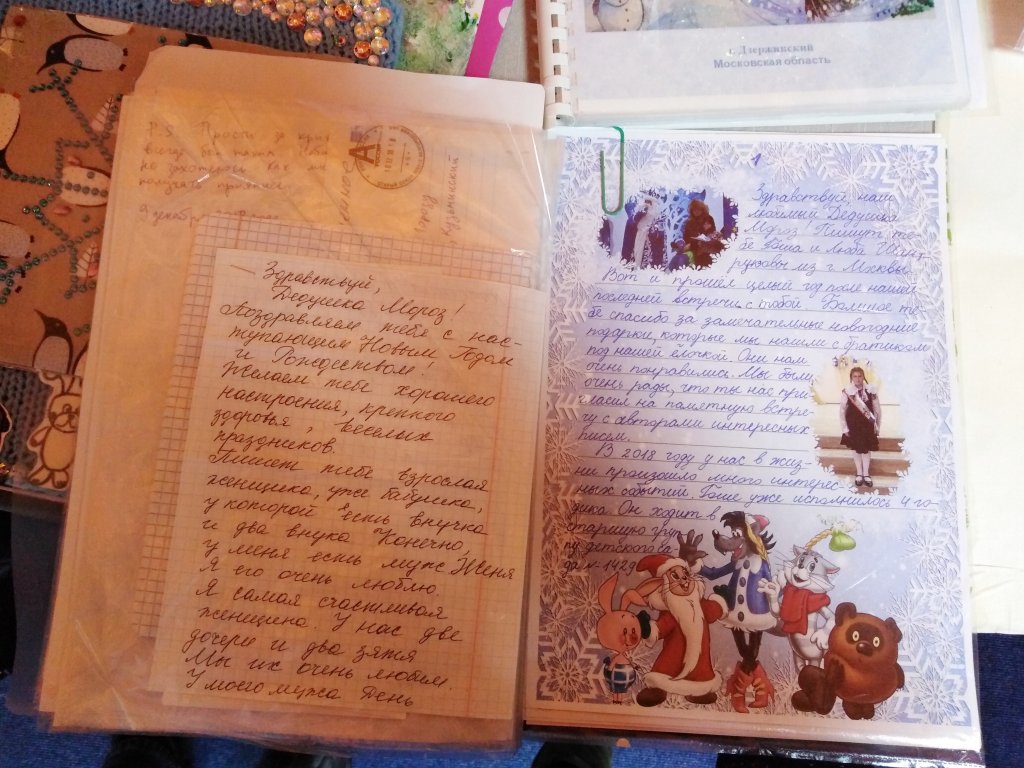 г. Дзержинский
Московская область
P.S. Прости за
9 декабря
Здравствуй,
Дедушка Мороз!
Поздравляем тебя с нас-
тупающим Новым Годом
и Рождеством!
Желаем тебе хорошего
настроения, крепкого
здоровья, веселых
праздников.
Пишет тебе взрослая
женщина, уже бабушка,
у которой есть внучка
и два внука. Конечно,
у меня есть муж Женя
Я его очень люблю.
Я самая счастливая
женщина. У нас две
дочери и два зятя
Мы их очень любим.
У моего мужа День
1
Здравствуй, наш
любимый Дедушка
Мороз! Пишут те-
бе и Люба
из г. Москвы.
Вот и прошел целый год после нашей
последней встречи с тобой. Большое те-
бе спасибо за замечательные новогодние
подарки, которые мы нашли с братиком
под нашей ёлочкой. Они нам
очень понравились. Мы были
очень рады, что ты нас при-
гласил на памятную встре-
чу с авторами интересных
писем.
В 2018 году у нас в жиз-
ни произошло много интерес-
ных событий. уже исполнилось 4 го-
дика. Он ходит в
старшую груп-
пу детского са-
да № 1429